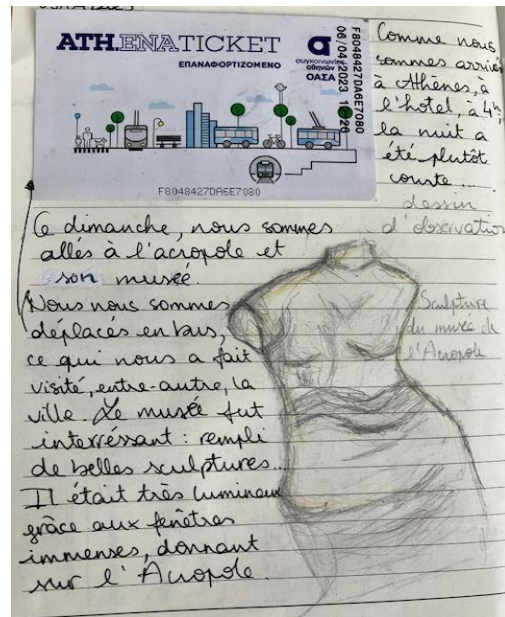 ATH.ENA TICKET
ΕΠΑΝΑΦΟΡΤΙΖΟΜΕΝΟ
συγκοινωνίες
αθηνών
ΟΑΣΑ
F8048427DA6E7080
F8048427DA6E7080
Comme nous
sommes arrivés
à Athènes, à
l'hotel, à 4h,
la nuit a
été plutôt
courte...
dessin
d'observation
Ce dimanche, nous sommes
allés à l'acropole et
son musée.
Nous nous sommes
déplacés en bus,
ce qui nous a fait
visité, entre-autre, la
ville. Le musée fut
interréssant : rempli
de belles sculptures...
Il était très lumineux
grâce aux fenêtres
immenses, donnant
sur l'Acropole.
Sculpture
du musée de
l'Acropole